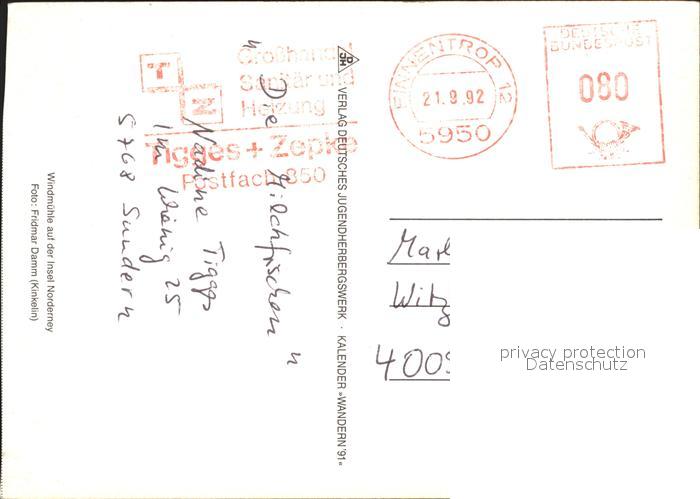 Großhandel
Sanitär und
Heizung
Tigges + Zepke
Postfach 850
FINNENTROP 12
21.9.92
5950
DEUTSCHE
BUNDESPOST
080
"Die Milchfrischen"
Nadine Tigges
Im Wiehig 25
5768 Sundern
VERLAG DEUTSCHES JUGENDHERBERGSWERK · KALENDER »WANDERN '91«
Windmühle auf der Insel Norderney
Foto: Fridmar Damm (Kinkelin)
Mar
Witz
400
privacy protection
Datenschutz